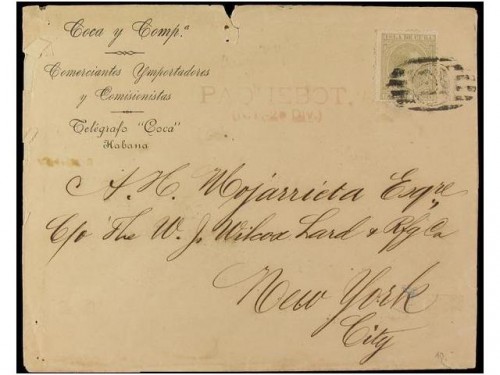 Coca y Comp.ª
Comerciantes Ymportadores
y Comisionistas
Telégrafo "Coca"
Habana
ISLA DE CUBA
PAQUEBOT.
A. H. Mojarrieta Esqre
C/o The W. J. Wilcox Lard & Rfg Co
New York
City